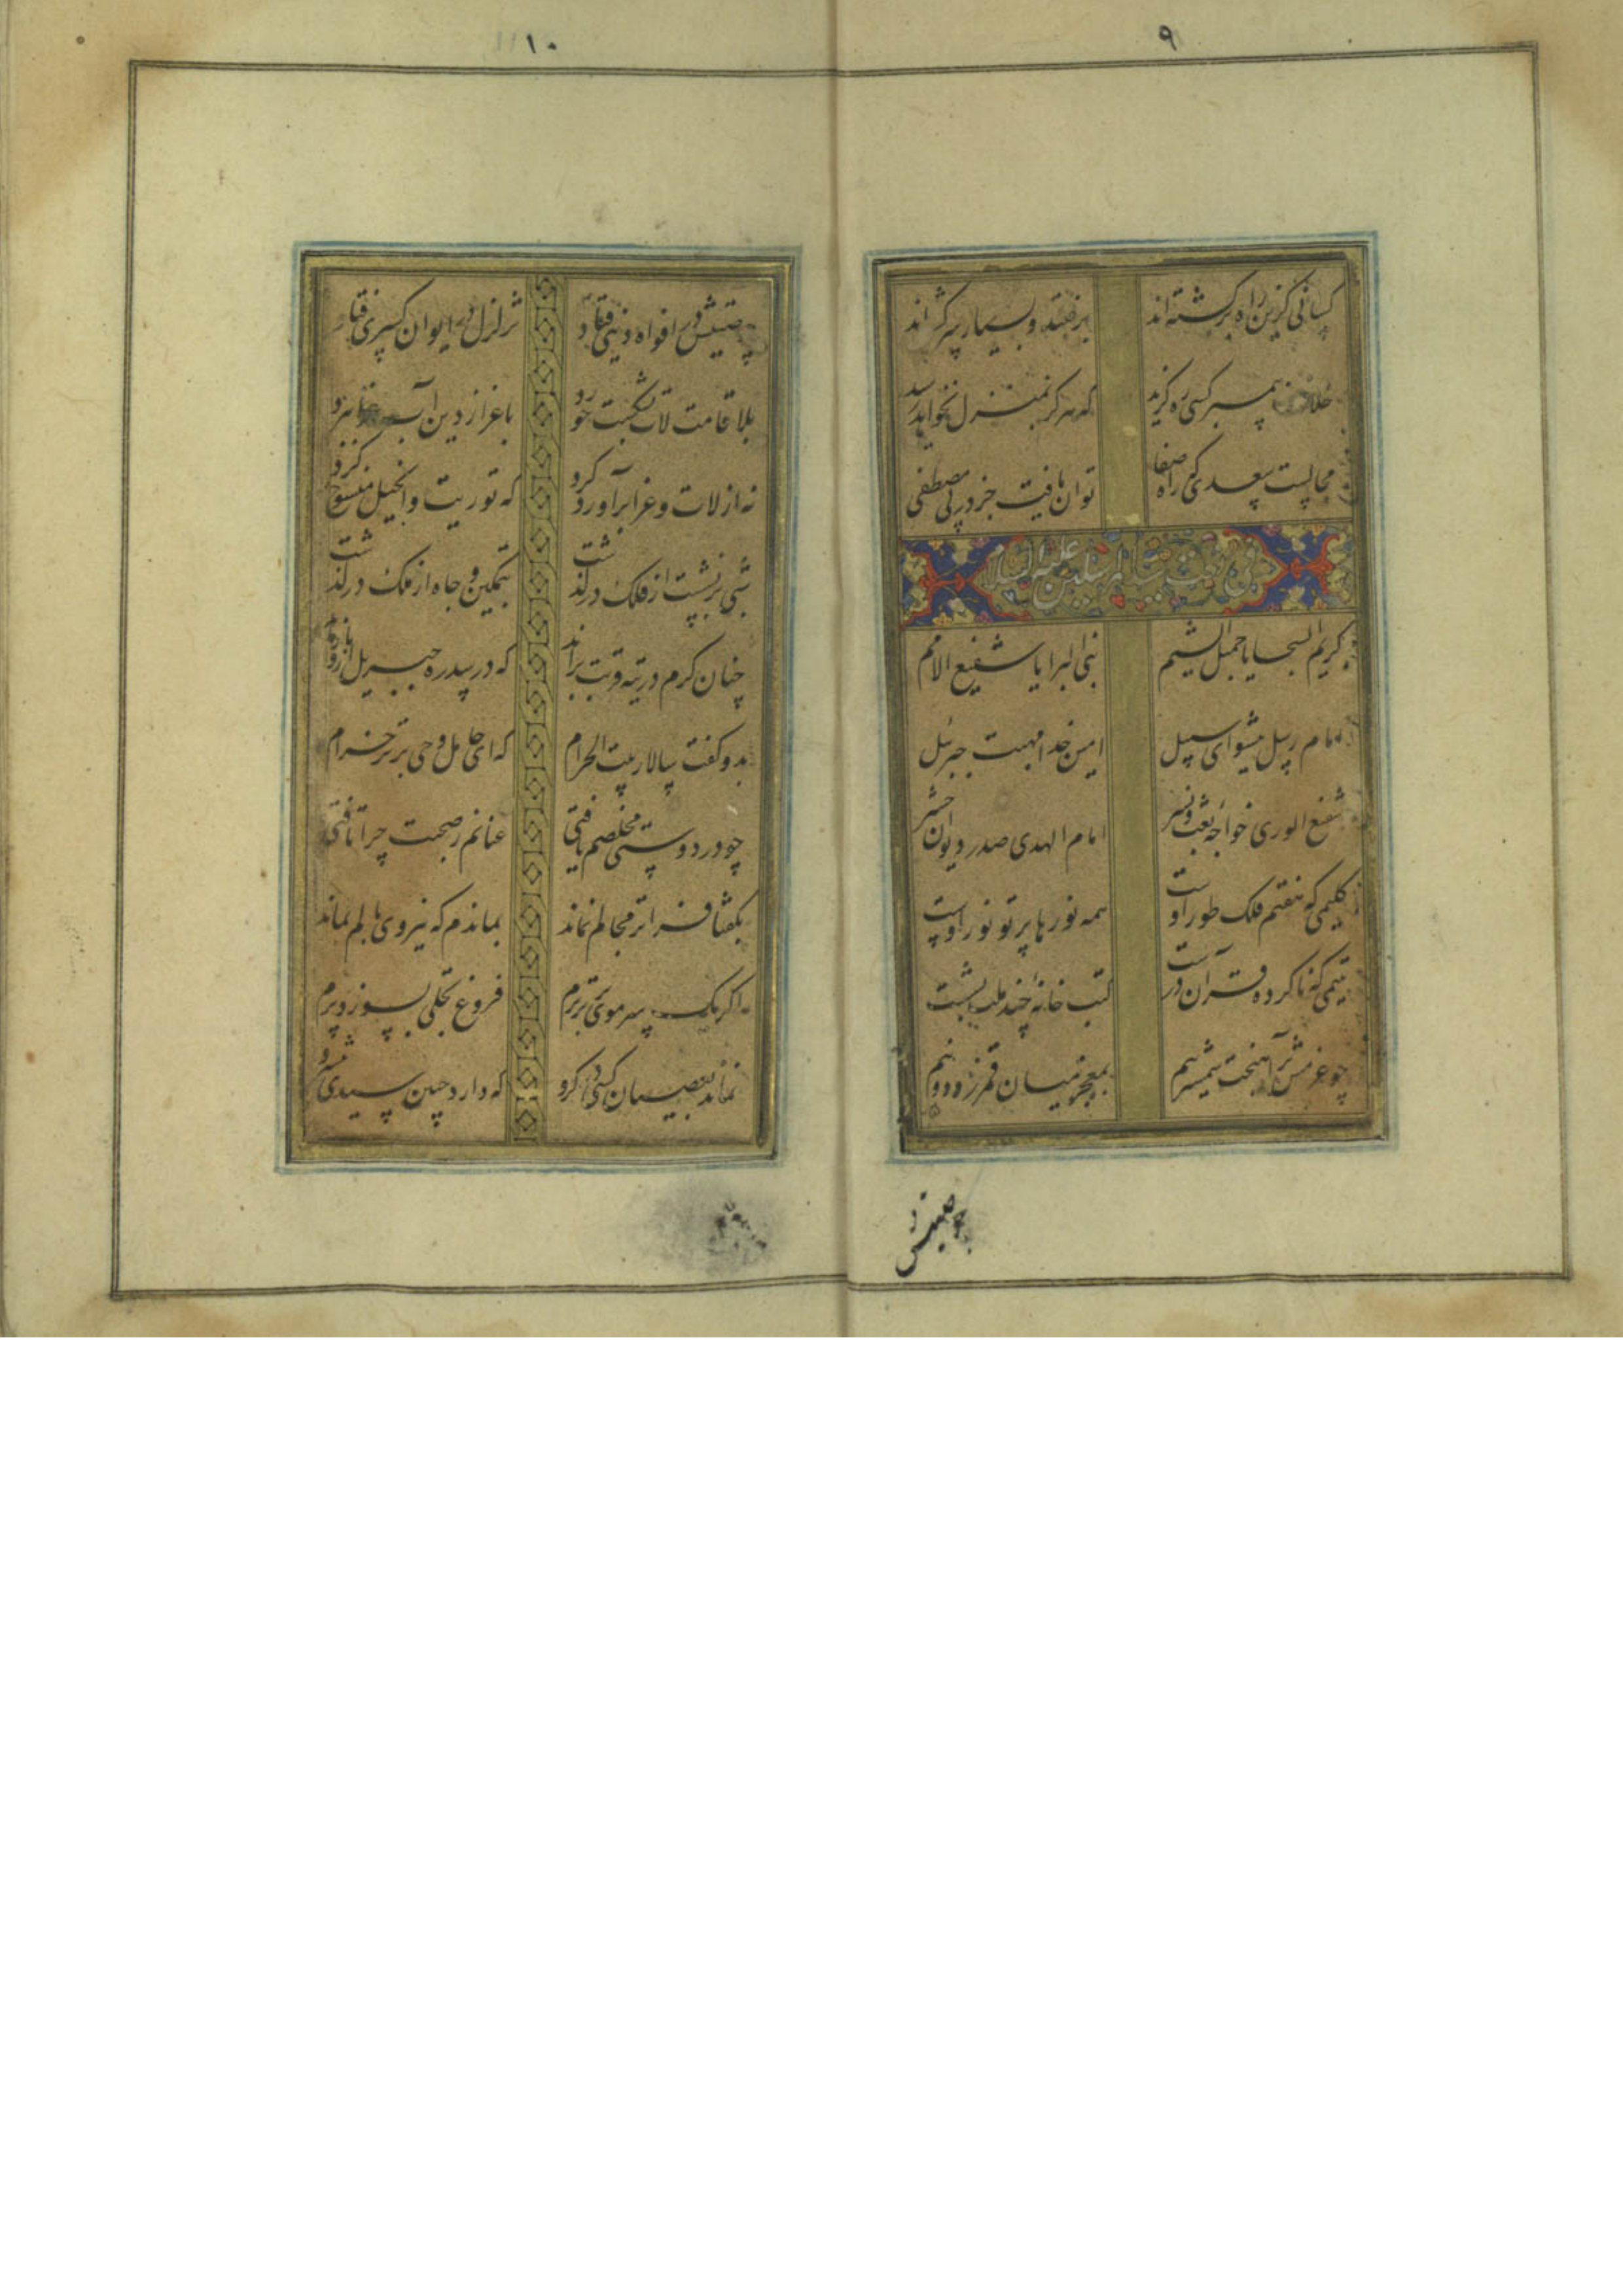 ۹
کسانی کزین راه برگشته‌اند برفتند و بسیار سرگشته‌اند
خلاف پیمبر کسی ره گزید که هرگز بمنزل نخواهد رسید
محالست سعدی که راه صفا توان یافت جز در پی مصطفی
علیه السلام
کریم السجایا جمیل الشیم نبی البرایا شفیع الامم
امام رسل پیشوای سبیل امین خدا مهبت جبرئل
شفیع الوری خواجه بعث و نشر امام الهدی صدر دیوان حشر
کلیمی که هفتم فلک طور اوست همه نورها پرتو نور اوست
یتیمی که ناکرده قرآن درست کتب خانه چند ملت بشست
چو عزمش برآهیخت شمشیر بیم بمعجز میان قمر زد دو نیم
چو صیتش در
۱۰
چو صیتش در افواه دنیی فتاد تزلزل در ایوان کسری فتاد
بلا قامت لات بشکست خرد باعزاز دین آب عزی ببرد
نه از لات و عزی برآورد کرد که توریت و انجیل منسوخ کرد
شبی برنشست از فلک درگذشت بتمکین و جاه از ملک درگذشت
چنان کرم در تیه قربت براند که در سدره جبریل ازو باز ماند
بدو گفت سالار بیت الحرام که ای حامل وحی برتر خرام
چو در دوستی مخلصم یافتی عنانم ز صحبت چرا تافتی
بگفتا فراتر مجالم نماند بماندم که نیروی بالم نماند
اگر یک سر موی برتر پرم فروغ تجلی بسوزد پرم
نماند بعصیان کسی در گرو که دارد چنین سیدی پیشرو